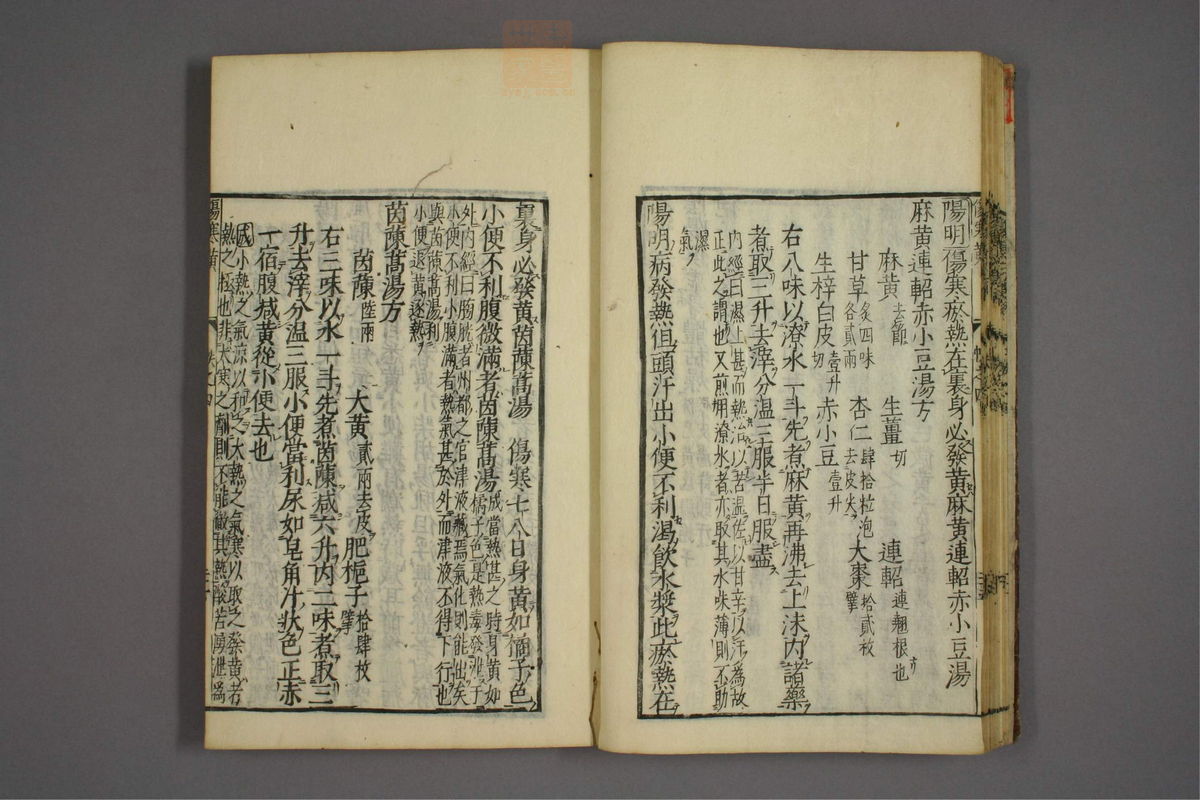 陽明傷寒瘀熱在裏身必發黃麻黃連軺赤小豆湯
麻黃連軺赤小豆湯方
麻黃去節 生薑切 連軺連翹根也
甘草炙四味各貳兩 杏仁肆拾粒泡去皮尖 大棗拾貳枚擘
生梓白皮切壹升 赤小豆壹升
右八味以潦水一斗先煮麻黃再沸去上沫內諸藥
煮取三升去滓分溫三服半日服盡
內經曰濕上甚而熱治以苦溫佐以甘辛以汗為故
正此之謂也又煎用潦水者亦取其水味薄則不助
濕氣
陽明病發熱但頭汗出小便不利渴飲水漿此瘀熱在
裏身必發黃茵蔯蒿湯 傷寒七八日身黃如橘子色
小便不利腹微滿者茵蔯蒿湯
成當熱甚之時身黃如橘子色是熱毒發泄于
外內經曰膀胱者州都之官津液藏焉氣化則能出矣
小便不利小腹滿者熱氣甚於外而津液不得下行也
與茵蔯蒿湯利
小便退黃逐熱
茵蔯蒿湯方
茵蔯陸兩 大黃貳兩去皮 肥梔子拾肆枚擘
右三味以水一斗先煮茵蔯減六升內二味煮取三
升去滓分溫三服小便當利尿如皂角汁狀色正赤
一宿腹減黃從小便去也
國小熱之氣涼以和之大熱之氣寒以取之發黃者
熱之極也非大寒之劑則不能徹其熱酸苦湧泄為
傷寒 黃